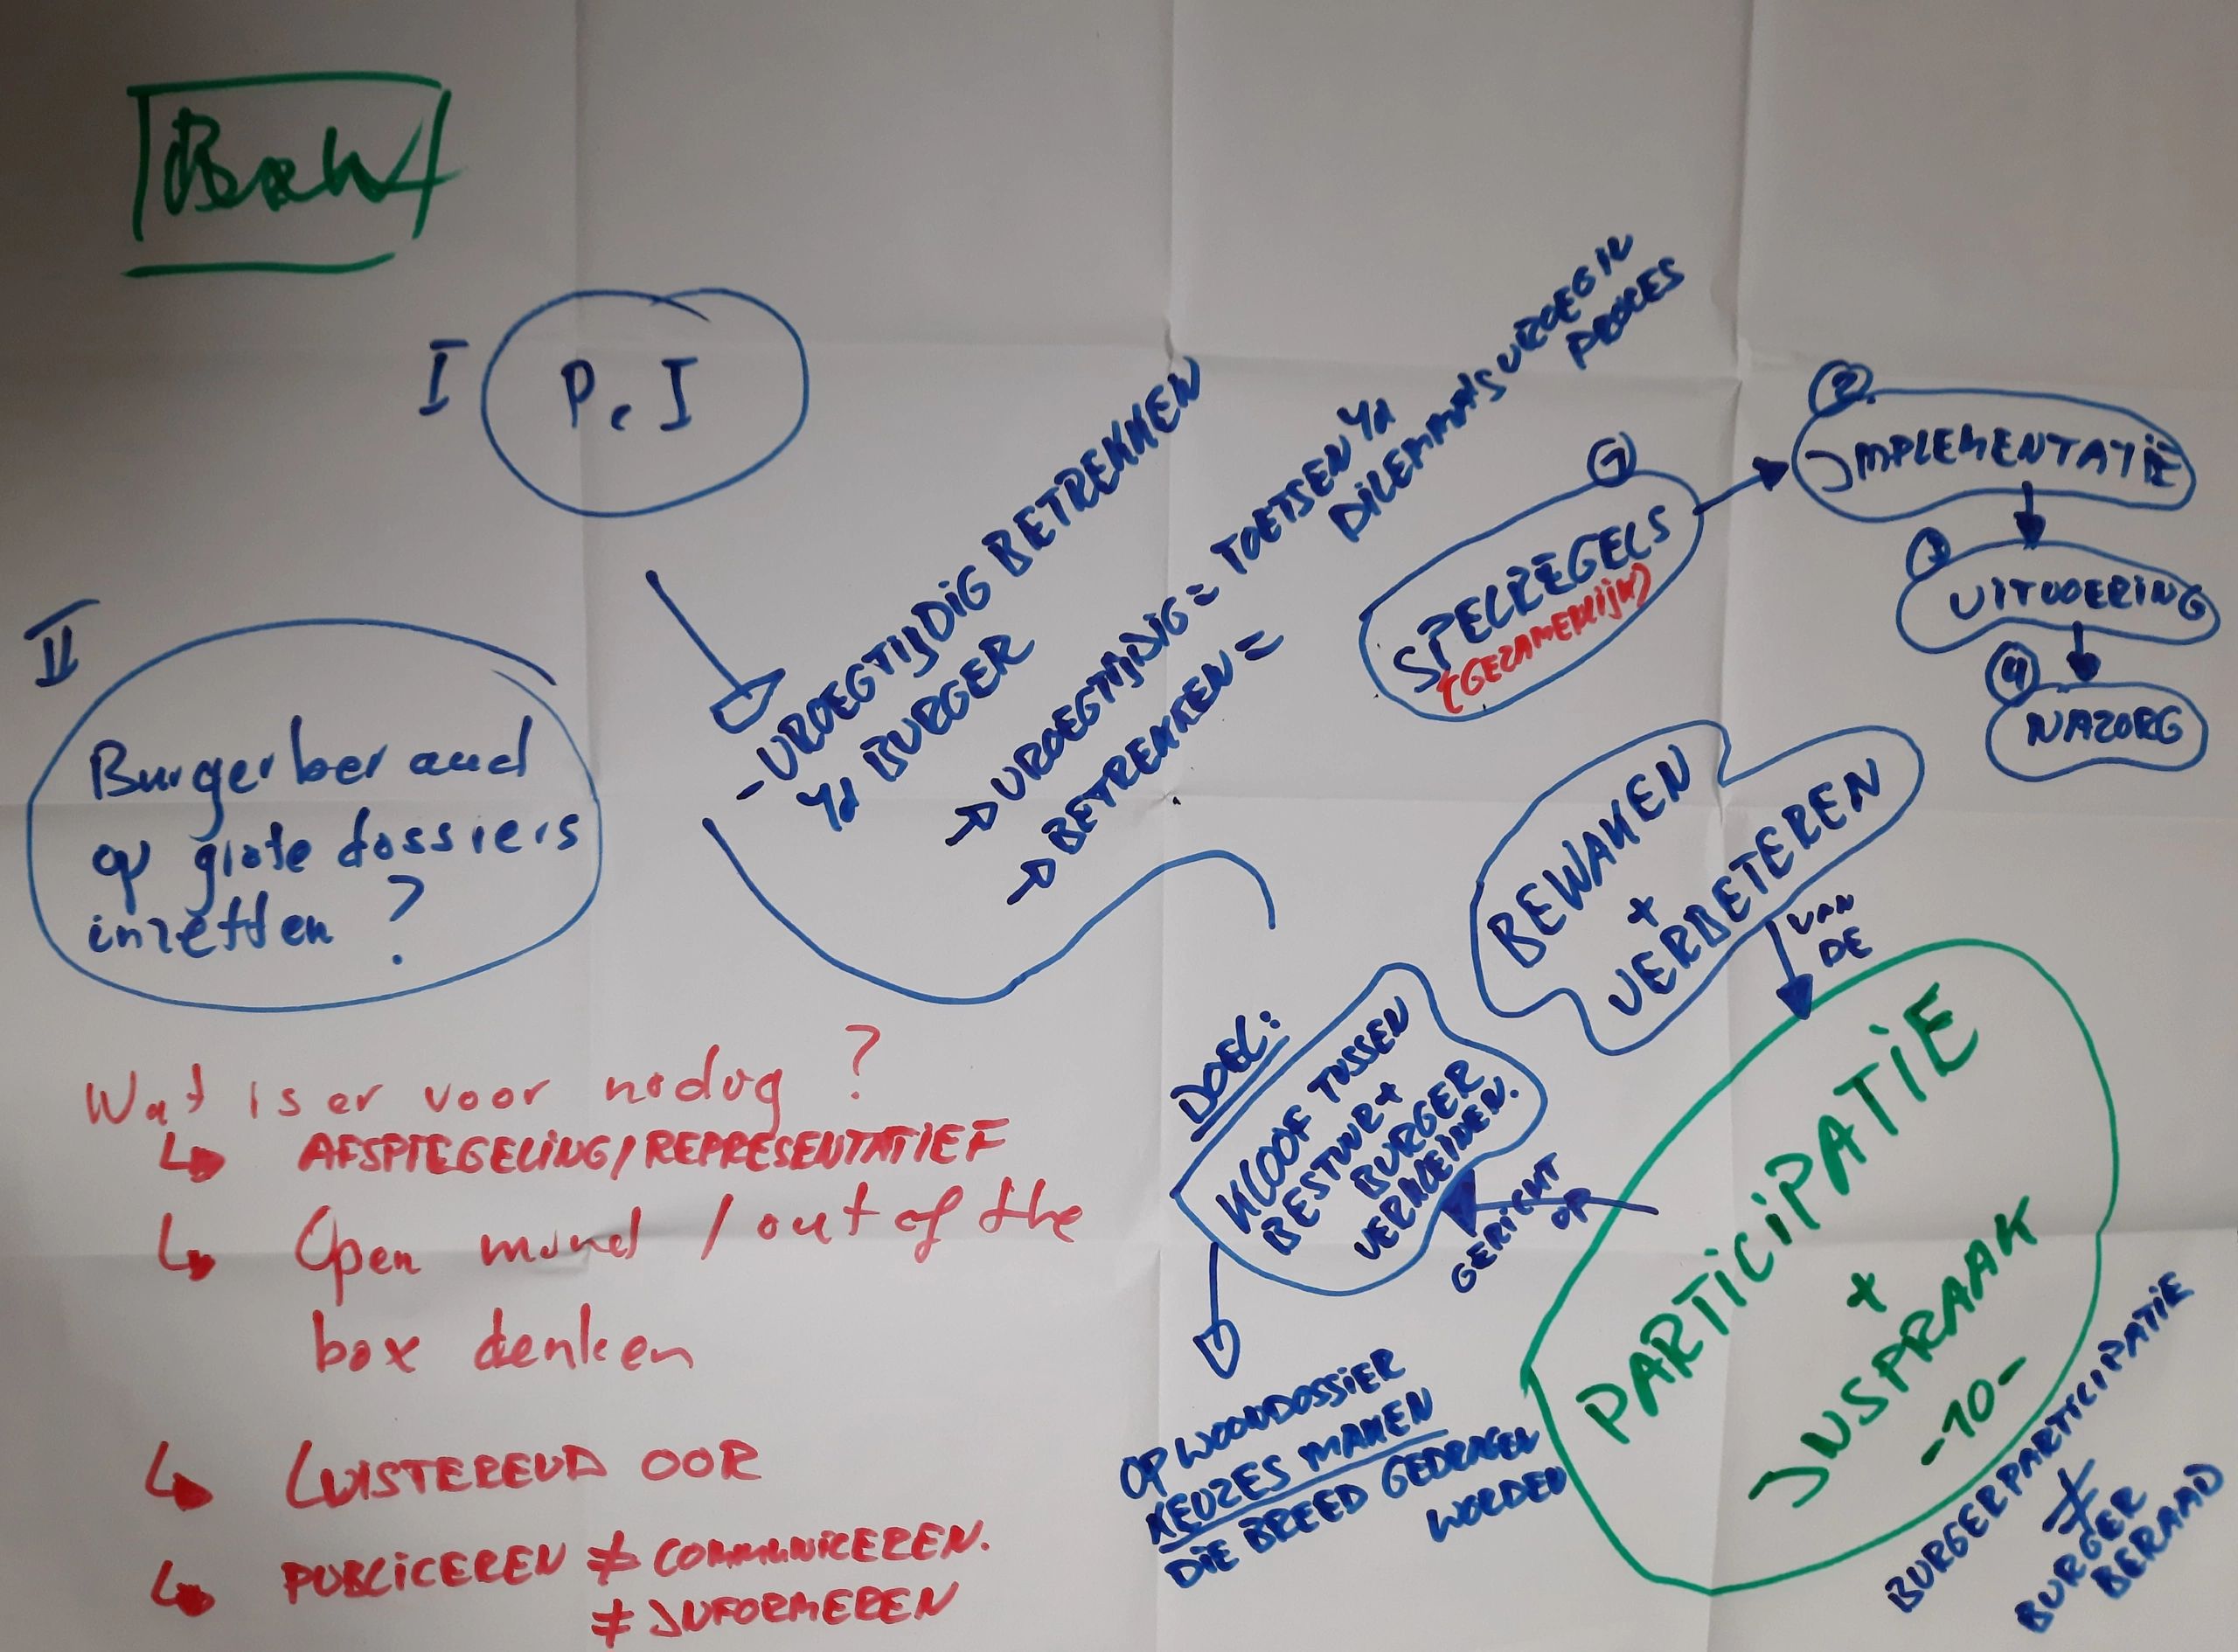 I
P & I
- VROEGTIJDIG BETREKKEN
BURGER
→ VROEGTIJDIG = TOETSEN
DILEMMA'S VROEG IN
PROCES
→ BETREKKEN =
1
SPELREGELS
(GEZAMENLIJK)
2
IMPLEMENTATIE
3
UITVOERING
4
NAZORG
II
Burgerberaad
op grote dossiers
inzetten ?
BEWAKEN
+
VERBETEREN
VAN
DE
PARTICIPATIE
+
INSPRAAK
-10-
GERICHT
OP
DOEL:
KLOOF TUSSEN
BESTUUR +
BURGER
VERKLEINEN.
OP WOONDOSSIER
KEUZES MAKEN
DIE BREED GEDRAGEN
WORDEN
BURGERPARTICIPATIE
≠
BURGER
BERAAD
Wat is er voor nodig ?
↳ AFSPIEGELING/REPRESENTATIEF
↳ Open mind / out of the
box denken
↳ LUISTEREND OOR
↳ PUBLICEREN ≠ COMMUNICEREN.
≠ INFORMEREN